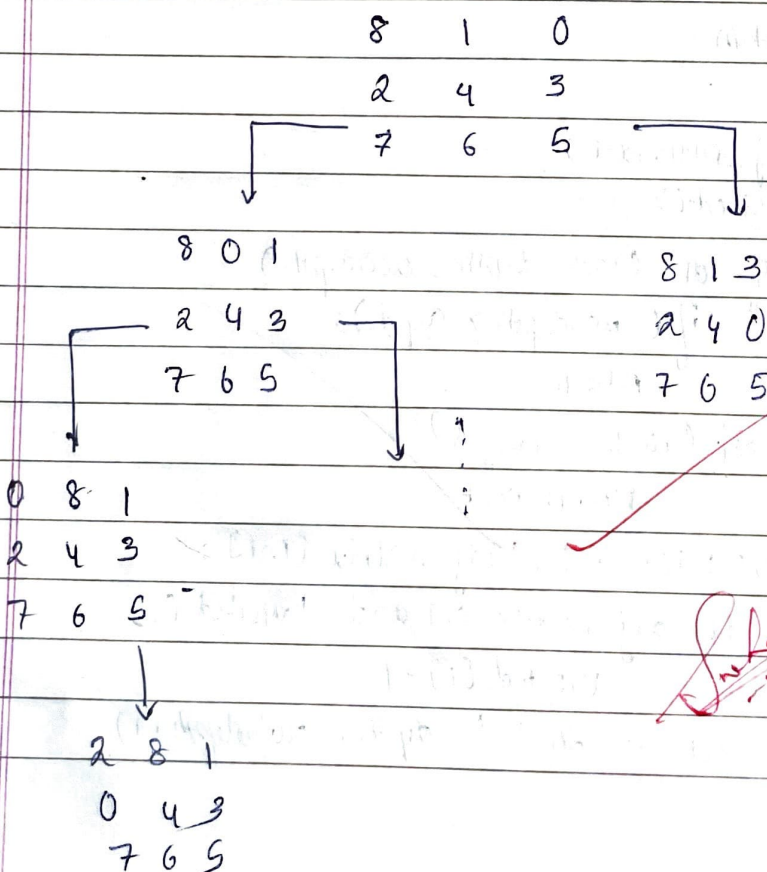 8 1 0
2 4 3
7 6 5
8 0 1
2 4 3
7 6 5
8 1 3
2 4 0
7 6 5
0 8 1
2 4 3
7 6 5
2 8 1
0 4 3
7 6 5